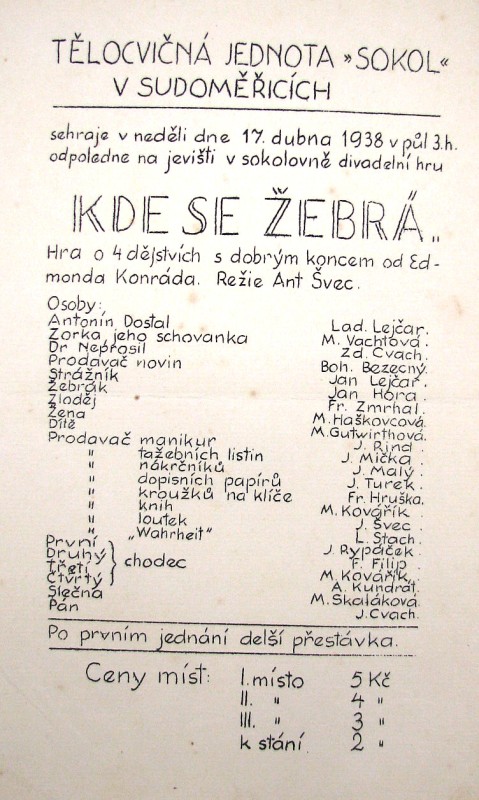 TĚLOCVIČNÁ JEDNOTA »SOKOL«
V SUDOMĚŘICÍCH
sehraje v neděli dne 17. dubna 1938 v půl 3.h.
odpoledne na jevišti v sokolovně divadelní hru
KDE SE ŽEBRÁ„
Hra o 4 dějstvích s dobrým koncem od Ed-
monda Konráda. Režie Ant Švec.
Osoby:
Antonín Dostal Lad. Lejčar.
Zorka, jeho schovanka M. Vachtová.
Dr Neprosil Zd. Cvach.
Prodavač novin Boh. Bezecný.
Strážník Jan Lejčar.
Žebrák Jan Hora.
Zloděj Fr. Zmrhal.
Žena M. Haškovcová.
Dítě M. Gutwirthová.
Prodavač manikur J. Rind.
" tažebních listin J. Mička.
" nákrčníků J. Malý.
" dopisních papírů J. Turek.
" kroužků na klíče Fr. Hruška.
" knih M. Kovářík.
" loutek J. Švec.
" „Wahrheit" L. Stach.
První J. Rypáček.
Druhý chodec F. Filip.
Třetí M. Kovářík.
Čtvrtý A. Kundrát.
Slečna M. Skaláková.
Pán J. Cvach.
Po prvním jednání delší přestávka.
Ceny míst: I. místo 5 Kč
II. " 4 "
III. " 3 "
k stání 2 "